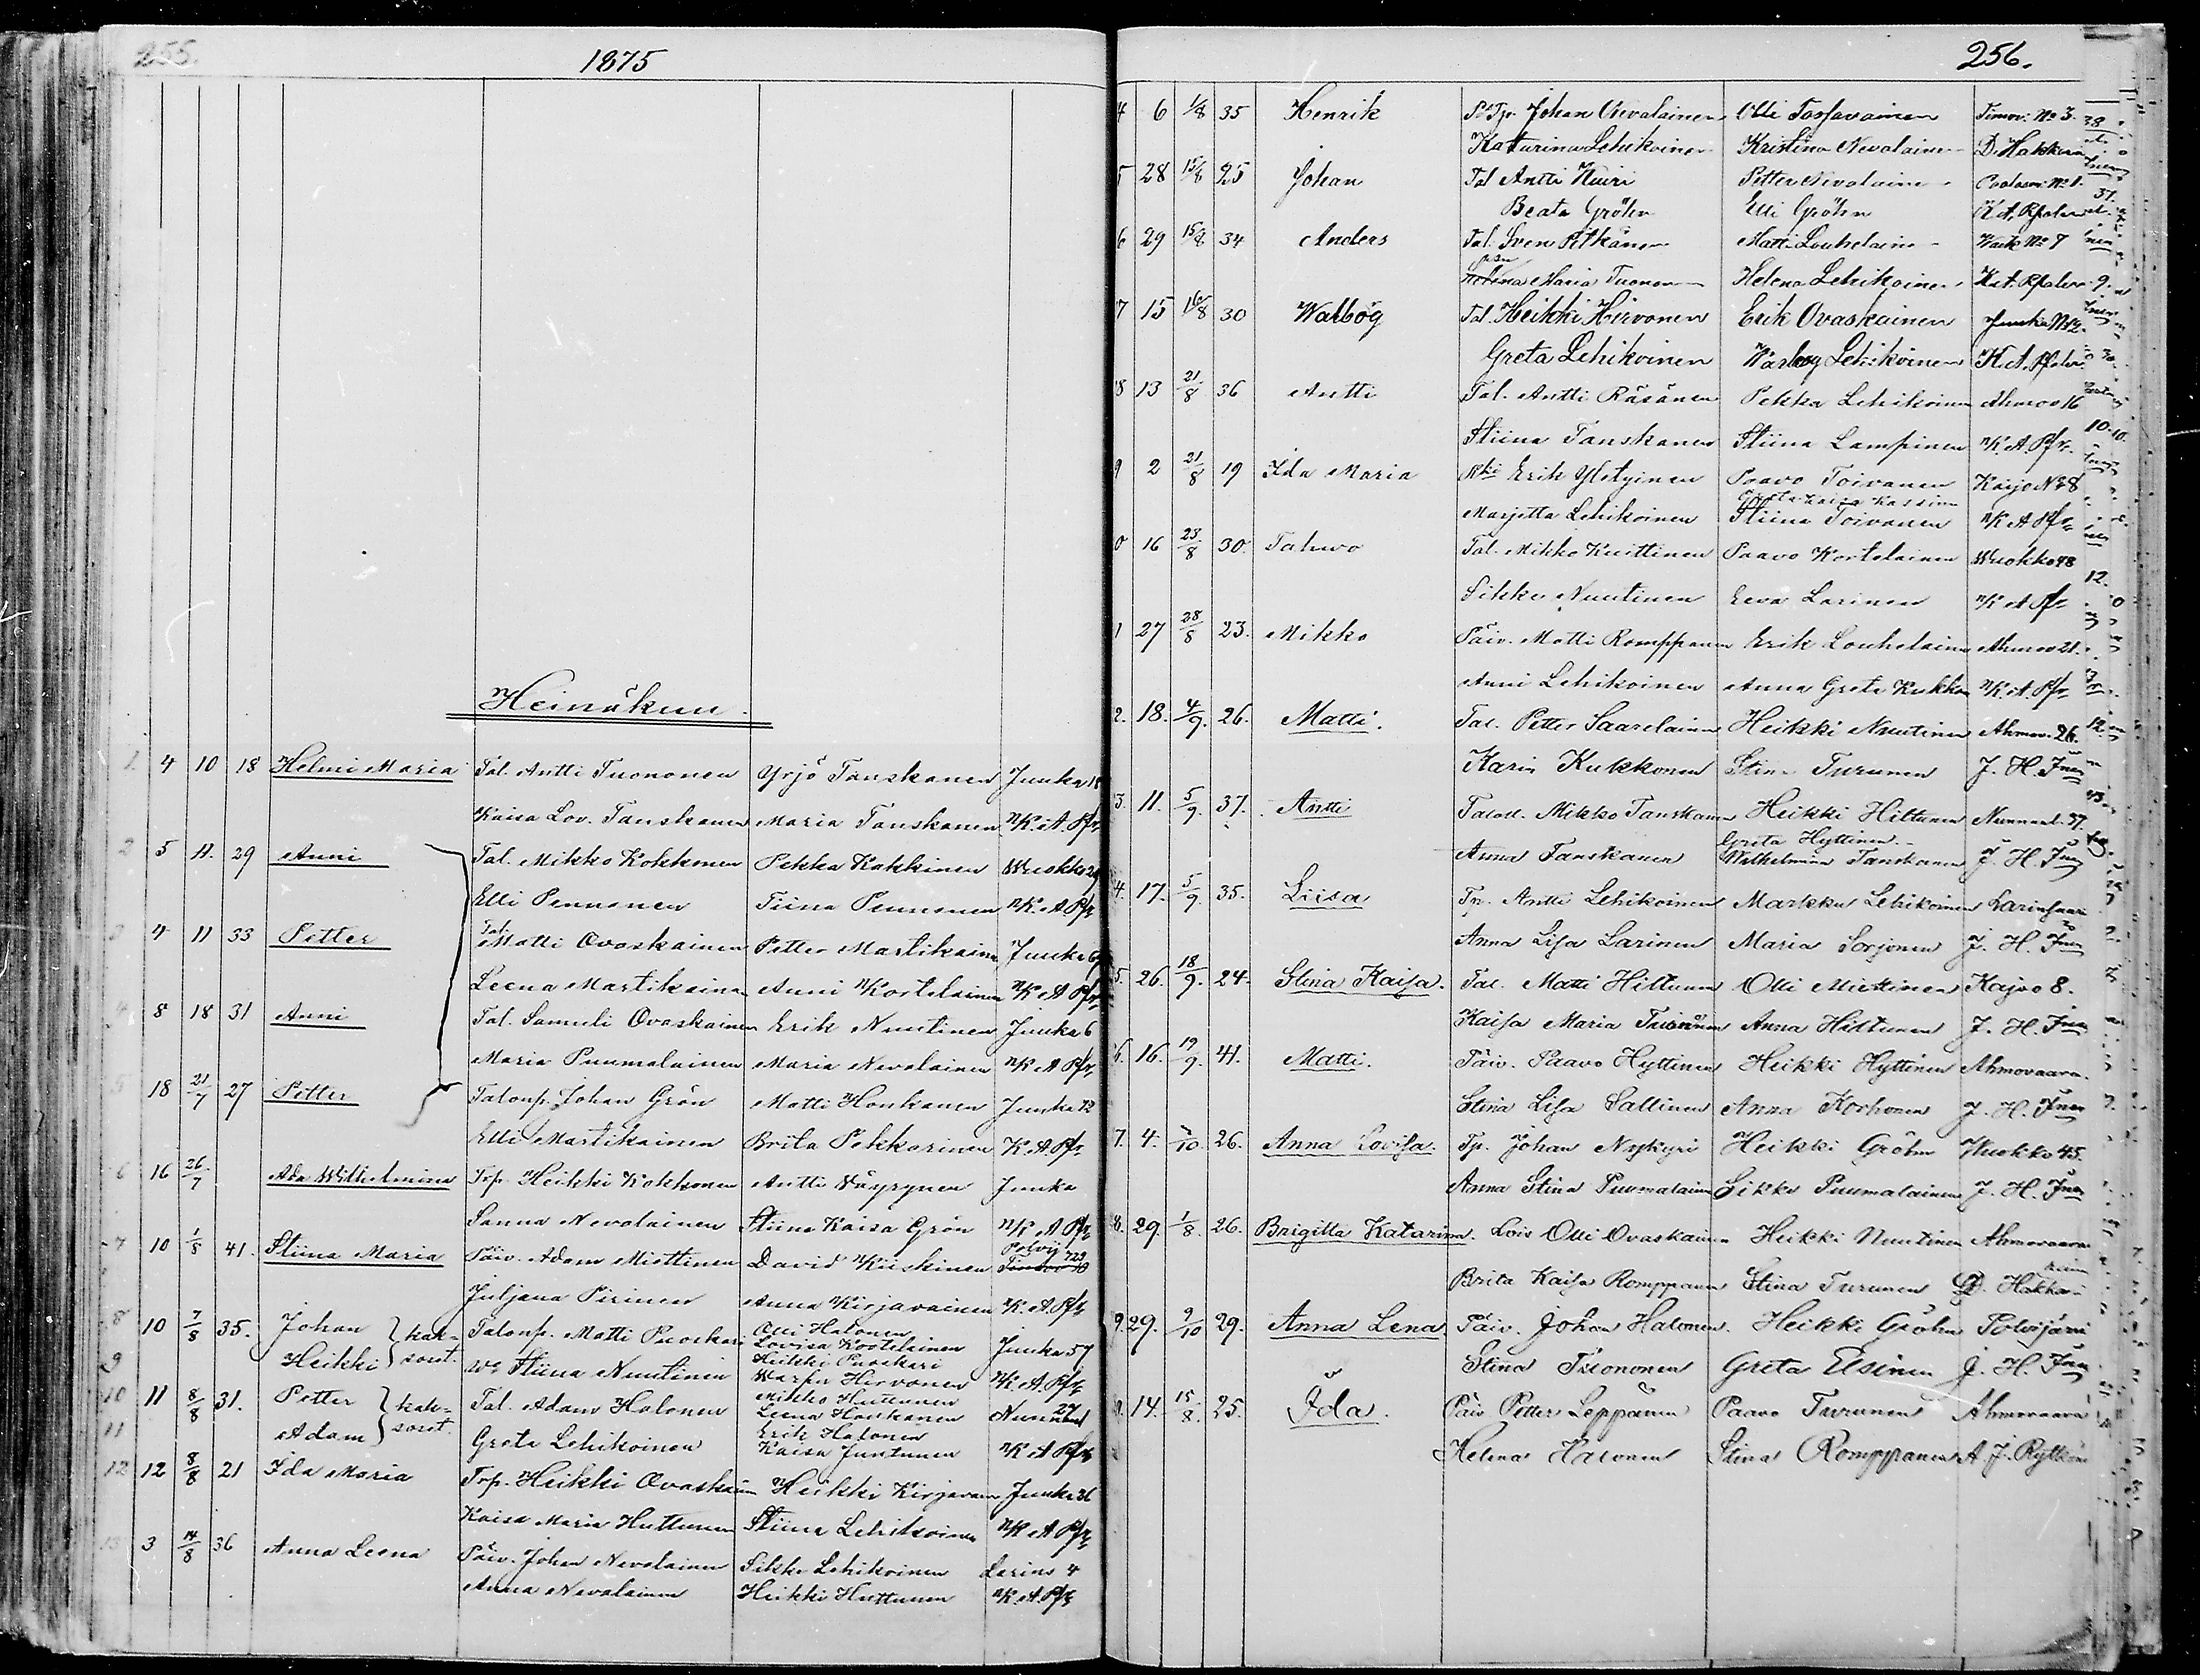 255.
1875
Heinäkuu.
1 4 10 18 Helmi Maria Tal. Antti Tuononen Yrjö Tanskanen Juuka 18
Kaisa Lov. Tanskanen Maria Tanskanen K. A. Pfr
2 5 11. 29 Anni Tal. Mikko Kokkonen Pekka Kokkinen Wuokko 29
Elli Pennanen Tiina Pennanen K. A. Pfr
3 4 11 33 Petter Tal. Matti Ovaskainen Petter Martikain Juuka 6
Leena Martikain Anni Kortelainen K. A. Pfr
4 8 18 31 Anni Tal. Samuli Ovaskainen Erik Nuutinen Juuka 6
Maria Puumalainen Maria Nevalainen K. A. Pfr
5 18 21/7 27 Petter Talonp. Johan Grön Matti Honkanen Juuka 12
Elli Martikainen Brita Pekkarinen K. A. Pfr
6 16 26/7 Ada Wilhelmina Trp. Heikki Kokkonen Antti Väyrynen Juuka
Sanna Nevalainen Stiina Kaisa Grön K. A. Pfr
7 10 1/8 41. Stiina Maria Päiv. Adam Miettinen David Kiiskinen Polvij
Juljana Pirinen Anna Kirjavainen K. A. Pfr
8 10 7/8 35. Johan kak- Talonp. Matti Puoskari Olli Halonen Lovisa Kortelainen Juuka 57
9 Heikki soret. Stiina Nuutinen Heikki Puoskari Hirvonen K. A. Pfr
10 11 8/8 31. Petter kak- Tal. Adam Halonen Mikko Huttunen Leena Honkanen 27
11 Adam soret. Greta Lehikoinen Erik Halonen Kaisa Juntunen K. A. Pfr
12 12 8/8 21 Ida Maria Trp. Heikki Ovaskain Heikki Kirjavain Juuka 36
Kaisa Maria Huttunen Stiina Lehikoinen K. A. Pfr
13 3 14/8 36 Anna Leena Päiv. Johan Nevalainen Sikko Lehikoinen Larins 4
Anna Nevalainen Heikki Huttunen K. A. Pfr
256.
4 6 1/8 35 Henrik Johan Nevalainen Olli Tossavainen Timov. No 3.
Katarina Lehikoinen Kristina Nevalainen D. Hakkarain
5 28 15/8 25 Johan Tal Antti Kuiri Petter Nevalainen No 1.
Beata Gröhn Elli Gröhn K. A.
6 29 15/8 34 Anders Tal. Sven Pitkänen Matti Louhelainen No 7
Maria Tuononen Helena Lehikoinen K. A.
7 15 16/8 30 Walbog Tal. Heikki Hirvonen Erik Ovaskainen Juuka No 2
Greta Lehikoinen Warbog Lehikoinen K. A.
8 13 21/8 36 Antti Tal. Antti Räsänen Pekka Lehikoinen Ahmov 16
Stiina Tanskanen Stiina Lampinen K. A. Pfr.
9 2 21/8 19 Ida Maria Erik Yletyinen Paavo Toivanen Kajo No 8
Marjetta Lehikoinen Stiina Toivanen K. A. Pfr
0 16 23/8 30. Tahwo Tal. Mikko Kuittinen Paavo Kortelainen Wuokko 48
Sikko Nuutinen Eeva Larinen K. A. Pfr
1 27 28/8 23. Mikko Päiv. Matti Romppanen Erik Louhelainen Ahmov 21.
Anni Lehikoinen Anna Greta Kukkon K. A. Pfr
2. 18. 4/9. 26. Matti. Tal. Petter Saarelainen Heikki Nuutinen Ahmov. 26.
Karin Kukkonen Stina Turunen J. H.
3. 11. 5/9. 37. Antti Mikko Tanskanen Heikki Hiltunen Nunnanl. 37
Greta Hyttinen
Anna Tanskanen Wilhelmina Tanskanen J. H.
4. 17. 5/9. 35. Liisa Tp. Antti Lehikoinen Markku Lehikoinen Larinsaari
Anna Lisa Larinen Maria Sorjonen J. H.
5. 26. 18/9. 24. Stina Kaisa. Tal. Matti Hiltunen Olli Miettinen Kajoo 8.
Kaisa Maria Anna Hiltunen J. H.
6. 16. 19/9. 41. Matti. Päiv. Paavo Hyttinen Heikki Hyttinen Ahmovaara.
Stina Lisa Sallinen Anna Korhonen J. H.
7. 4. /10 26. Anna Lovisa. Tp. Johan Nykyri Heikki Gröhn Wuokko 45.
Anna Stina Puumalainen Sikko Puumalainen J. H.
8. 29. 1/8. 26. Brigitta Katarina. Lois Olli Ovaskainen Heikki Nuutinen Ahmovaara
Brita Kaisa Romppanen Stina Turunen D. Hakka-
9. 29. 9/10 29. Anna Lena Päiv. Johan Halonen. Heikki Gröhn Polvijärvi
Stina Tuononen Greta Elsinen J. H.
0. 14. 15/8. 25. Ida. Päiv Petter Leppänen Paavo Turunen Ahmovaara
Helena Halonen Stina Romppanen A J. Rytkön